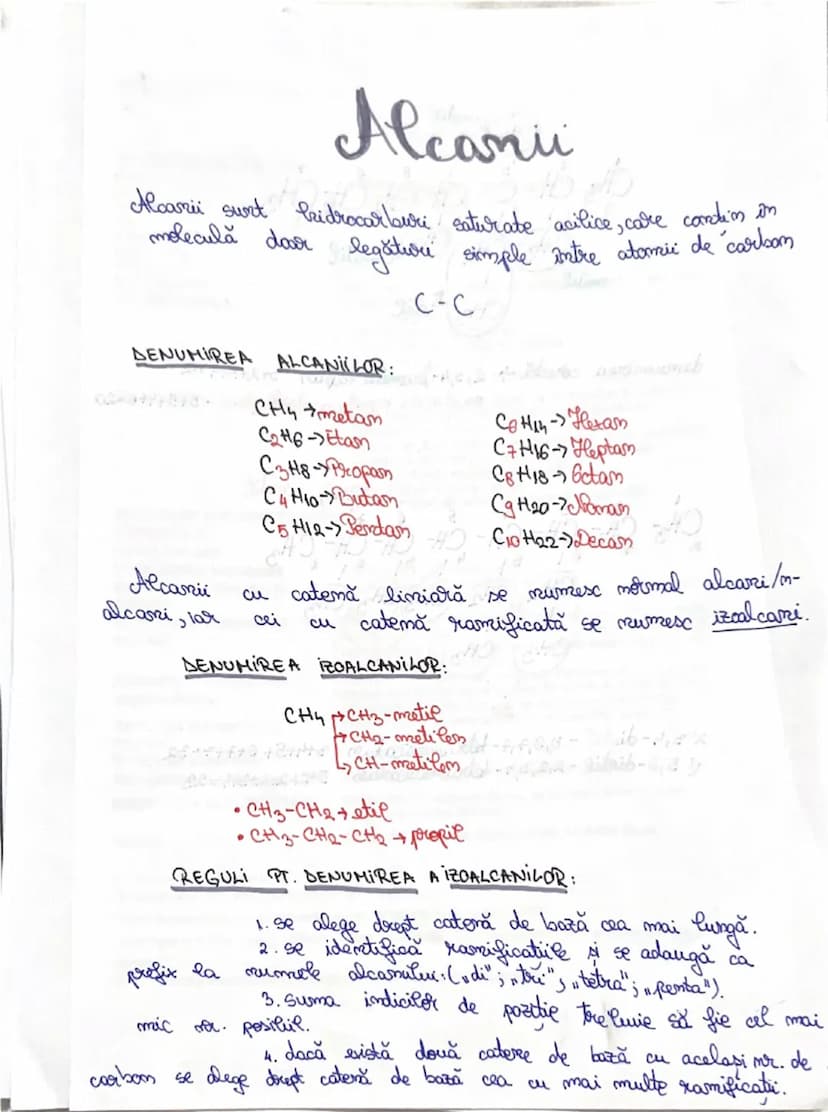 Alcanii
Alcanii sunt hidrocarburi saturate acilice, care conțin în
moleculă doar legături simple între atomii de carbon
C-C
DENUMIREA ALCANIILOR:
CH4 → metan
C2H6 → Etan
C3H8 → Propan
C4H10 → Butan
C5H12 → Pentan
C6H14 → Hexan
C7H16 → Heptan
C8H18 → Octan
C9H20 → Nonan
C10H22 → Decan
Alcanii cu catenă liniară se numesc normal alcani/n-
alcani, iar cei cu catenă ramificată se numesc izoalcani.
DENUMIREA IZOALCANILOR:
CH4 → CH3-metil
→ CH2-metilen
↳ CH-metilen
• CH3-CH2 → etil
• CH3-CH2-CH2 → propil
REGULI PT. DENUMIREA A IZOALCANILOR:
1. se alege drept catenă de bază cea mai lungă.
2. se identifică ramificatiile și se adaugă ca
prefix la numele alcanului: („di"; „tri"; „tetra"; „penta").
3. Suma indicilor de poziție trebuie să fie cel mai
mic nr. posibil.
4. dacă există două catere de bază cu același nr. de
carbon se alege drept catenă de bază cea cu mai multe ramificații.